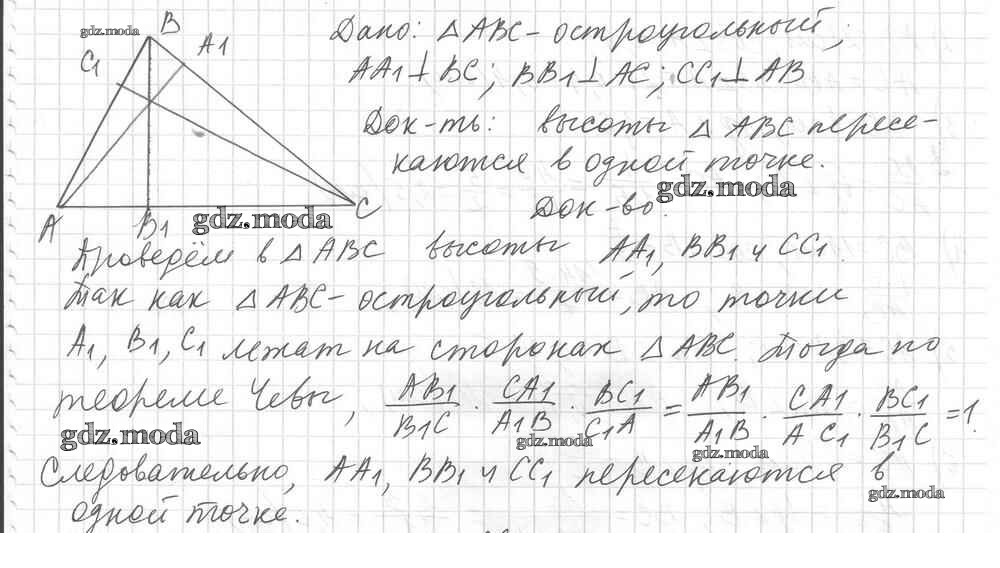 gdz.moda
B
A1
C1
A
B1
C
Дано: △ ABC - остроугольный;
AA1 ⊥ BC; BB1 ⊥ AC; CC1 ⊥ AB
Док-ть: высоты △ ABC пересе-
каются в одной точке.
gdz.moda
gdz.moda
Док-во:
Проведём в △ ABC высоты AA1, BB1 и CC1.
Так как △ ABC - остроугольный, то точки
A1, B1, C1 лежат на сторонах △ ABC. Тогда по
теореме Чевы, AB1/B1C · CA1/A1B · BC1/C1A = AB1/A1B · CA1/A C1 · BC1/B1C = 1.
gdz.moda
gdz.moda
gdz.moda
Следовательно, AA1, BB1 и CC1 пересекаются в
gdz.moda
одной точке.